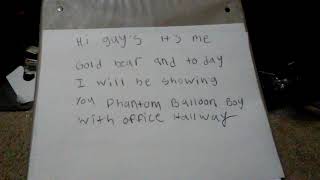 Hi guy's it's me
Gold bear and today
I will be showing
You Phantom Balloon Boy
with office Hallway